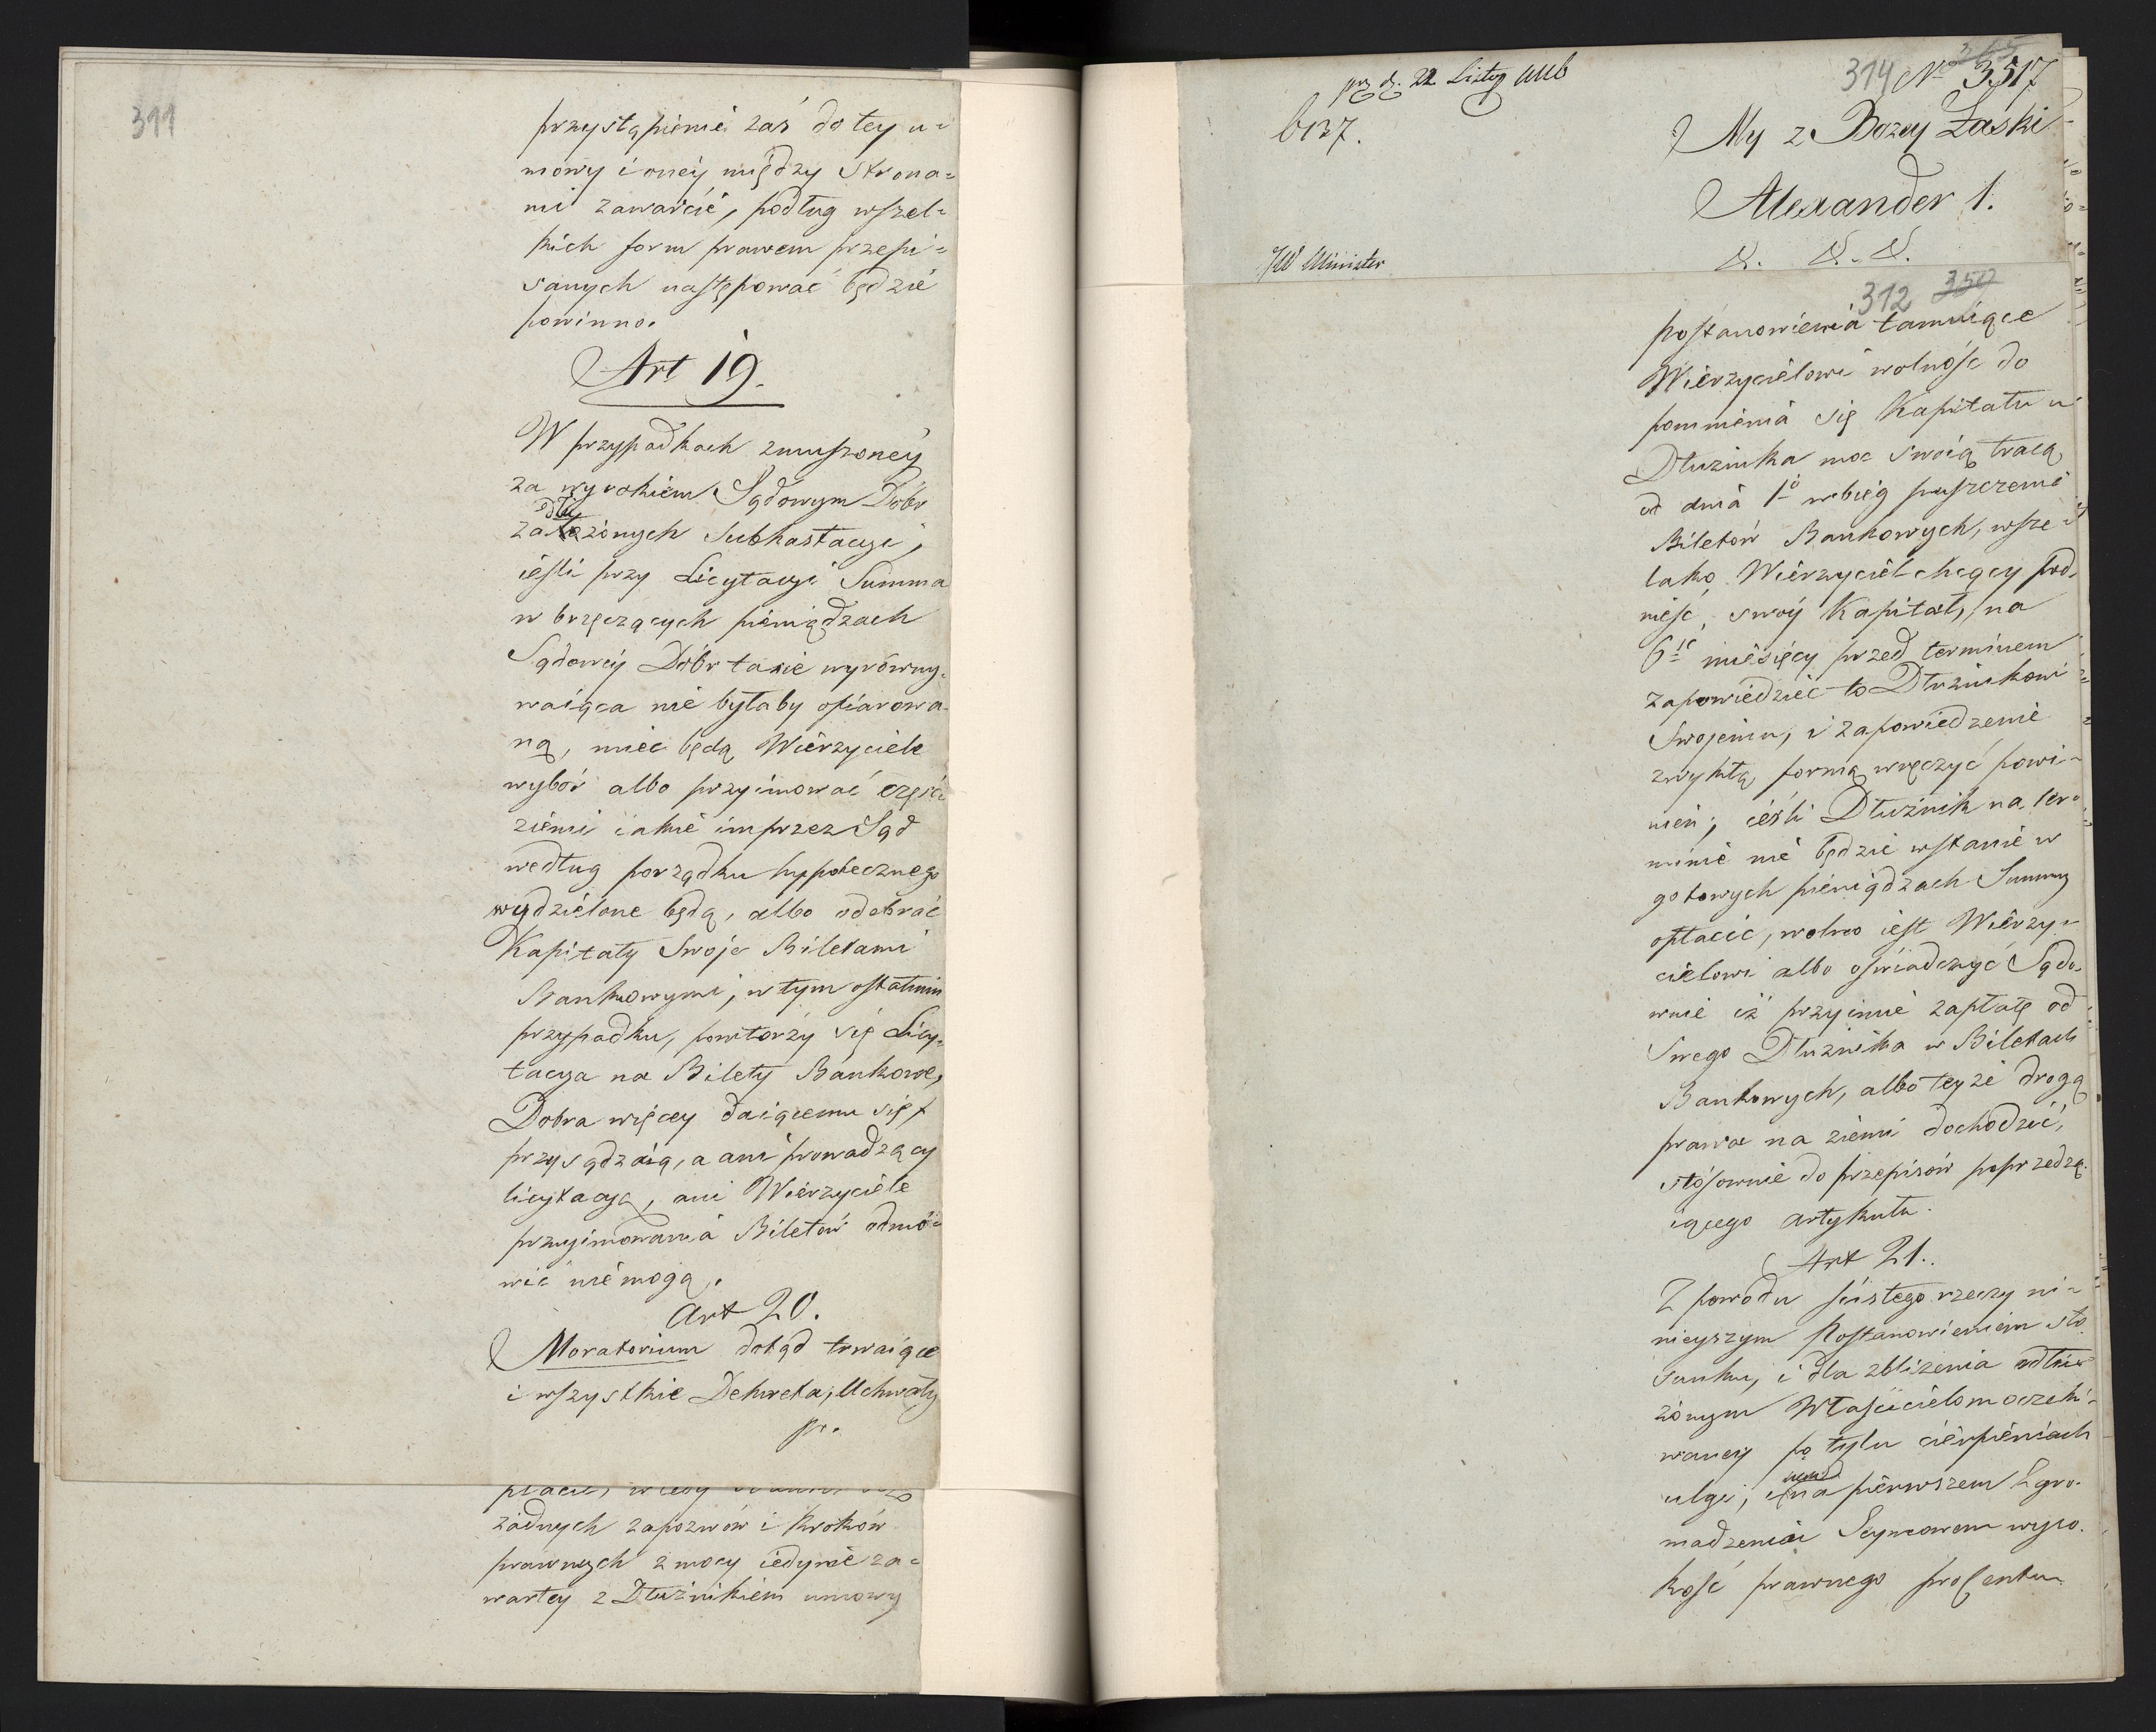 311
przystąpienie zaś do tey u=
mowy i oney między Strona=
mi zawarcie, podług wszel=
kich form prawem przepi=
sanych następować będzie
powinno.
Art 19.
W przypadkach zmuszoney
za wyrokiem Sądowym Dóbr
zadłużonych Subhastacyi,
ieśli przy Licytacyi Summa
w brzęczących pieniądzach
Sądowey Dóbr taxie wyrówny=
waiąca nie byłaby ofiarowa=
ną, mieć będą Wierzyciele
wybór albo przyimować części
ziemi iakie im przez Sąd
według porządku hyppotecznego
wydzielone będą, albo odebrać
Kapitały Swoje Biletami
Bankowymi, w tym ostatnim
przypadku, powtórzy się Licy=
tacya na Bilety Bankowe,
Dobra więcey daiącemu się
przysądzaią, a ani prowadzący
licytacyą, ani Wierzyciele
przyimowania Biletów odmó=
wić nie mogą.
Art 20.
Moratorium dotąd trwaiące
i wszystkie Dekreta, Uchwały
żadnych zapozwów i kroków
prawnych z mocy iedynie za=
wartey z Dłużnikiem umowy
pr. d. 22 Listop
6137.
314 No 3517
My z Bożey Łaski
Alexander 1.
&. &. &.
JW Minister
312 350
postanowienia tamuiące
Wierzycielowi wolność do
pomnienia się Kapitału u
Dłużnika moc swoią tracą
od dnia 1o w bieg puszczenia
Biletów Bankowych, wsze=
lako Wierzyciel chcący pod=
nieść swoy Kapitał, na
6ić miesięcy przed terminem
zapowiedzieć to Dłużnikowi
Swojemu, i zapowiedzenie
zwykłą formą wręczyć powi=
nien; ieśli Dłużnik na ter=
minie nie będzie wstanie w
gotowych pieniądzach Summy
opłacić, wolno iest Wierzy=
cielowi albo oświadczyć Sądo=
wnie iż przyimie zapłatę od
Swego Dłużnika w Biletach
Bankowych, albo teyże drogą
prawa na ziemi dochodzić,
stósownie do przepisów poprzedza=
iącego artykułu.
Art 21.
Z powodu ścisłego rzeczy ni=
nieyszym Postanowieniem sto=
sunku, i dla zbliżenia udłu=
żonym Właścicielom oczeki=
waney po tylu cierpieniach
ulgi, na pierwszem Zgro=
madzeniu Seymowem wyso=
kość prawnego procentu